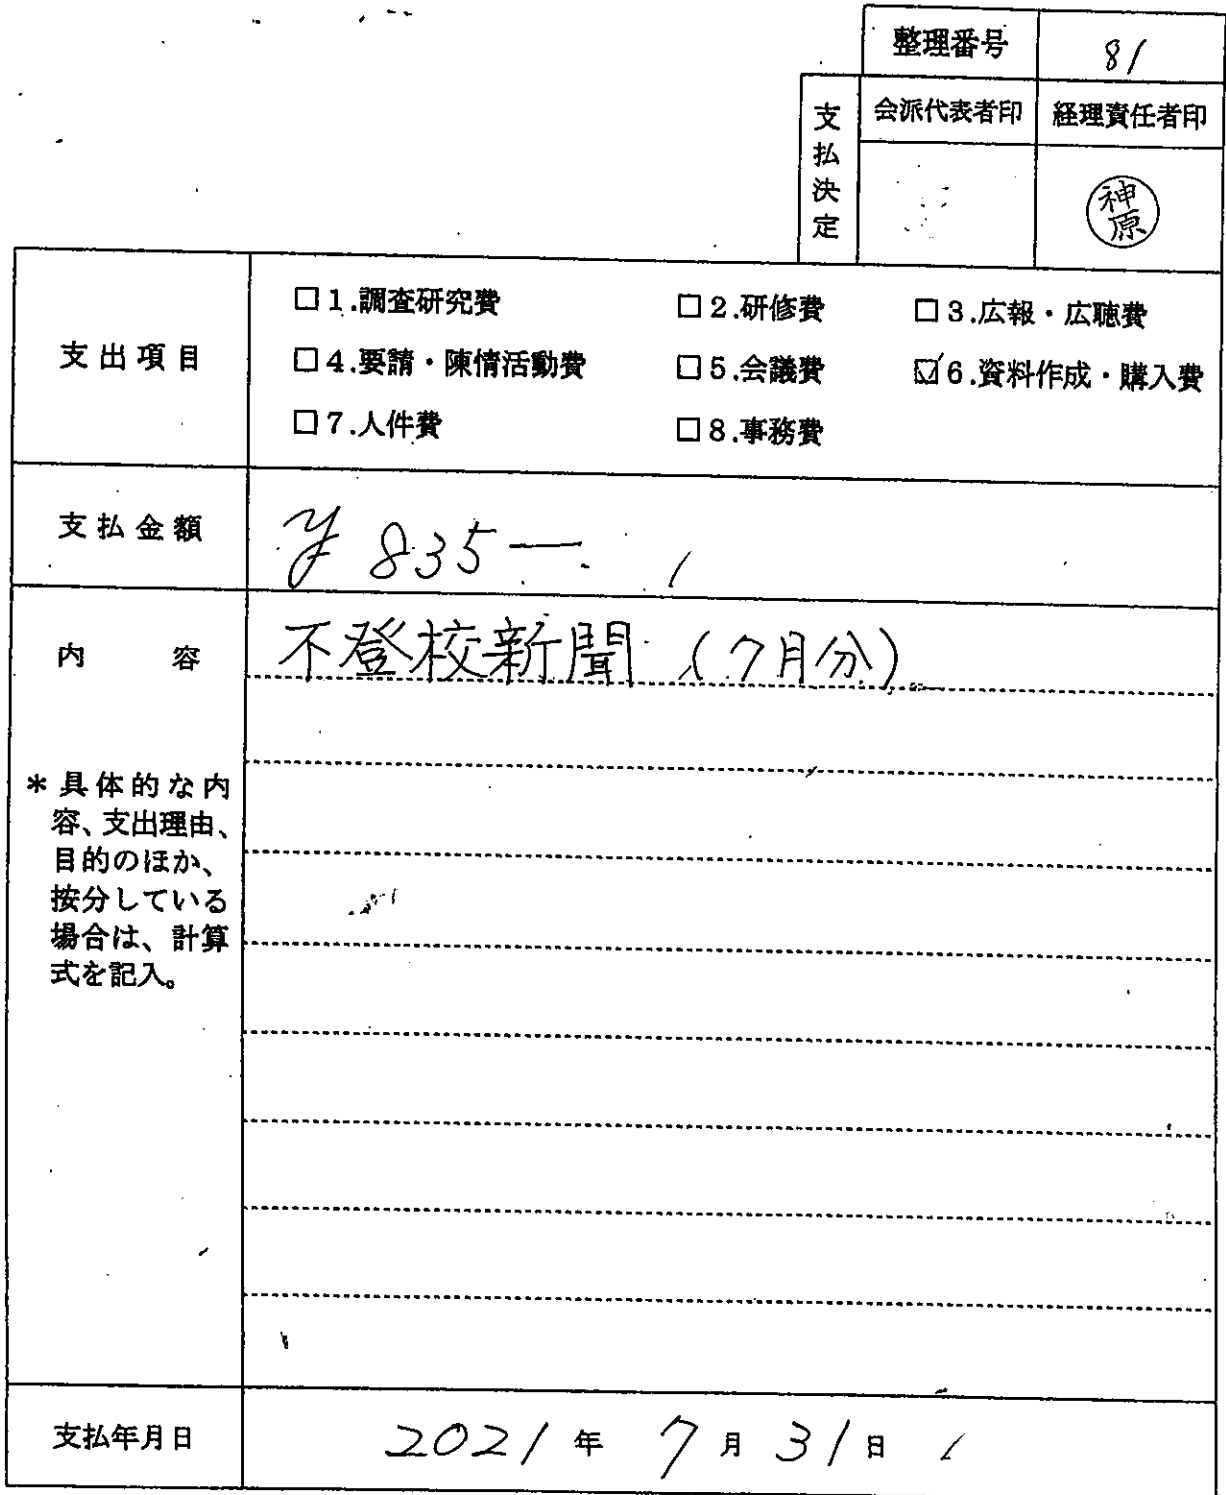 整理番号 81
支払決定 会派代表者印 経理責任者印
神原
支出項目
□1.調査研究費 □2.研修費 □3.広報・広聴費
□4.要請・陳情活動費 □5.会議費 ☑6.資料作成・購入費
□7.人件費 □8.事務費
支払金額 ¥835―
内容 不登校新聞(7月分)
*具体的な内
容、支出理由、
目的のほか、
按分している
場合は、計算
式を記入。
支払年月日 2021年7月31日